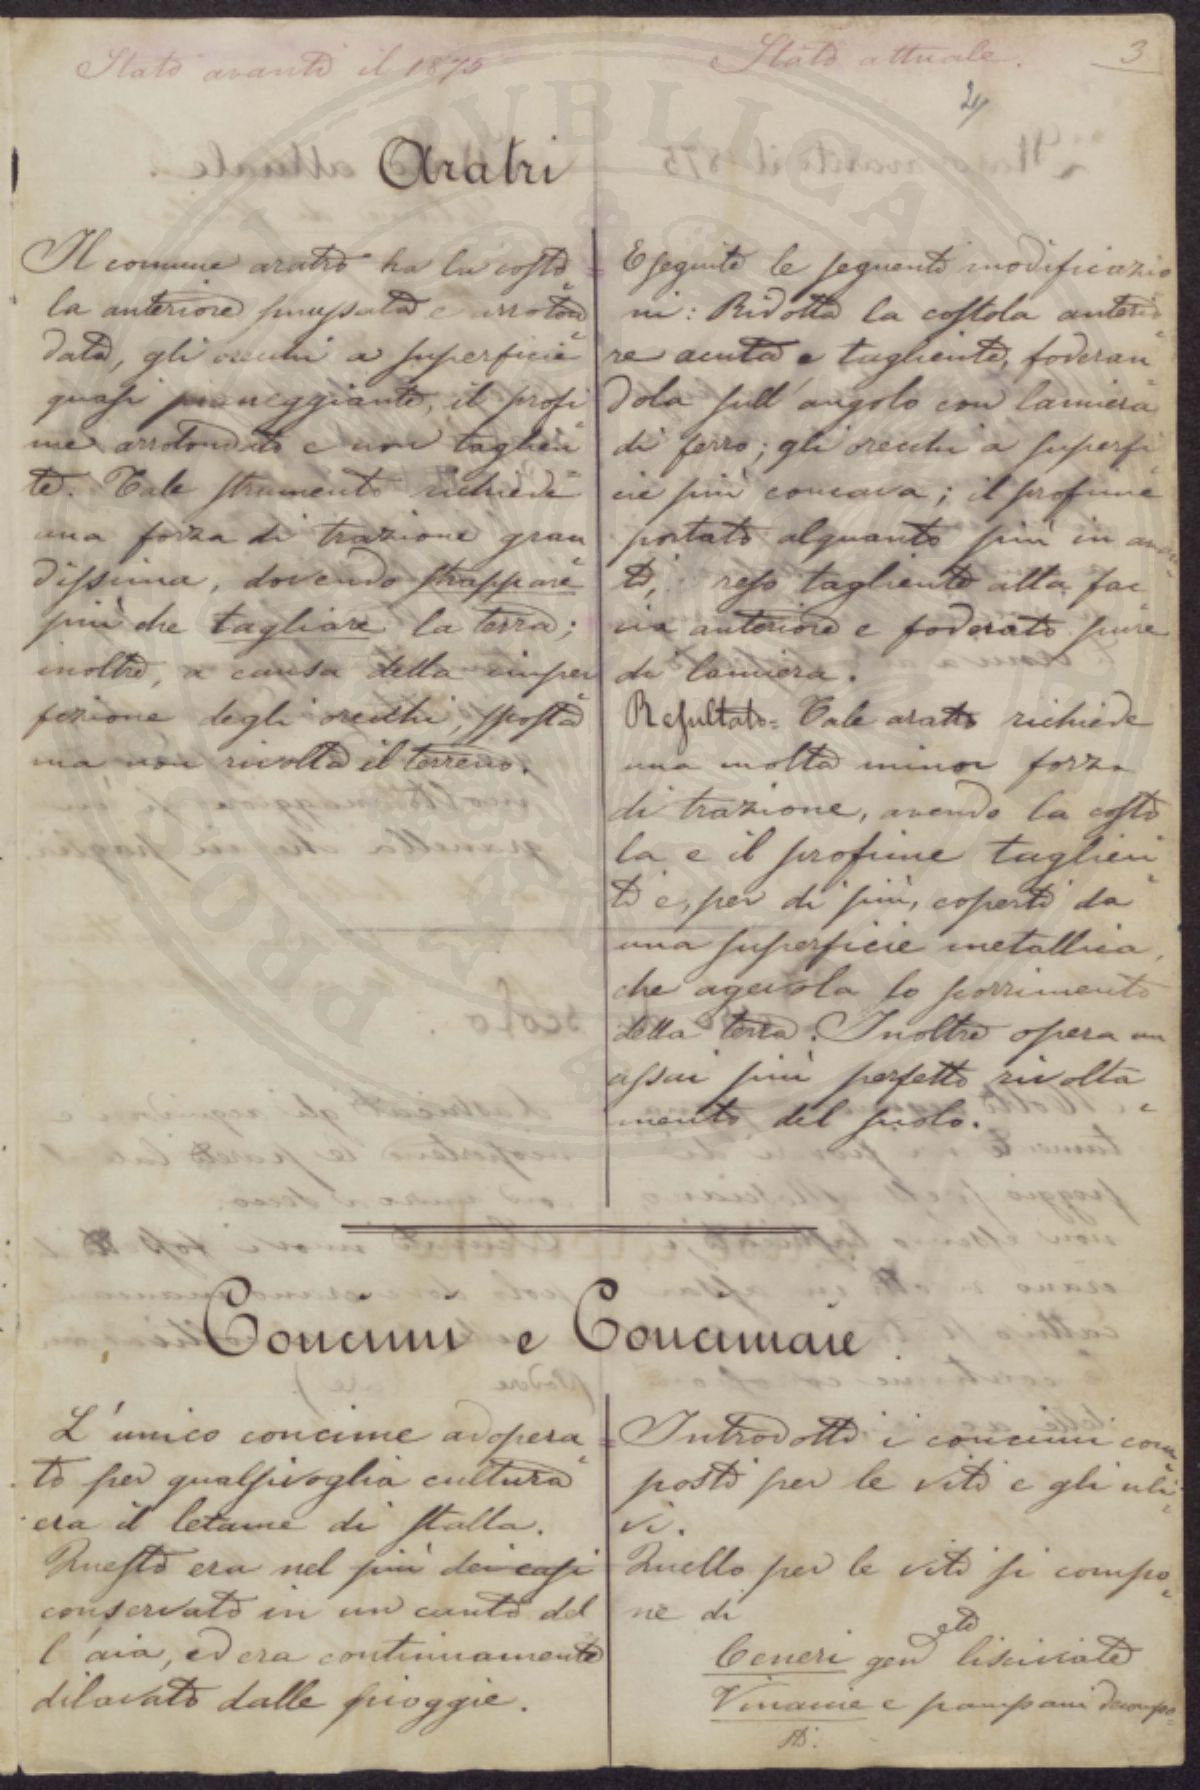 Stato avanti il 1875
Stato attuale.
3
24
Aratri
Il comune aratro ha la costo=
la anteriore smussata e arroton=
data, gli orecchi a superficie
quasi pianeggiante, il profi=
me arrotondato e non taglien=
te. Tale strumento richiede
una forza di trazione gran=
dissima, dovendo strappare
più che tagliare la terra;
inoltre, a causa della imper=
fezione degli orecchi, sposta
ma non rivolta il terreno.
Eseguite le seguenti modificazio=
ni: Ridotta la costola anterio=
re acuta e tagliente, foderan=
dola sull'angolo con lamiera
di ferro; gli orecchi a superfi=
cie più concava; il profime
portato alquanto più in avan=
ti, reso tagliente alla fac=
cia anteriore e foderato pure
di lamiera.
Resultato= Tale aratro richiede
una molto minor forza
di trazione, avendo la costo=
la e il profime taglien=
ti e, per di più, coperti da
una superficie metallica,
che agevola lo scorrimento
della terra. Inoltre opera un
assai più perfetto rivolta=
mento del suolo.
Concimi e Concimaie
L'unico concime adopera=
to per qualsivoglia cultura
era il letame di stalla.
Questo era nel più dei casi
conservato in un canto del=
l'aia, ed era continuamente
dilavato dalle pioggie.
Introdotti i concimi com=
posti per le viti e gli uli=
vi.
Quello per le viti si compo=
ne di
Ceneri gen ete lisciviate
Vinacie e pampani decompo=
sti.